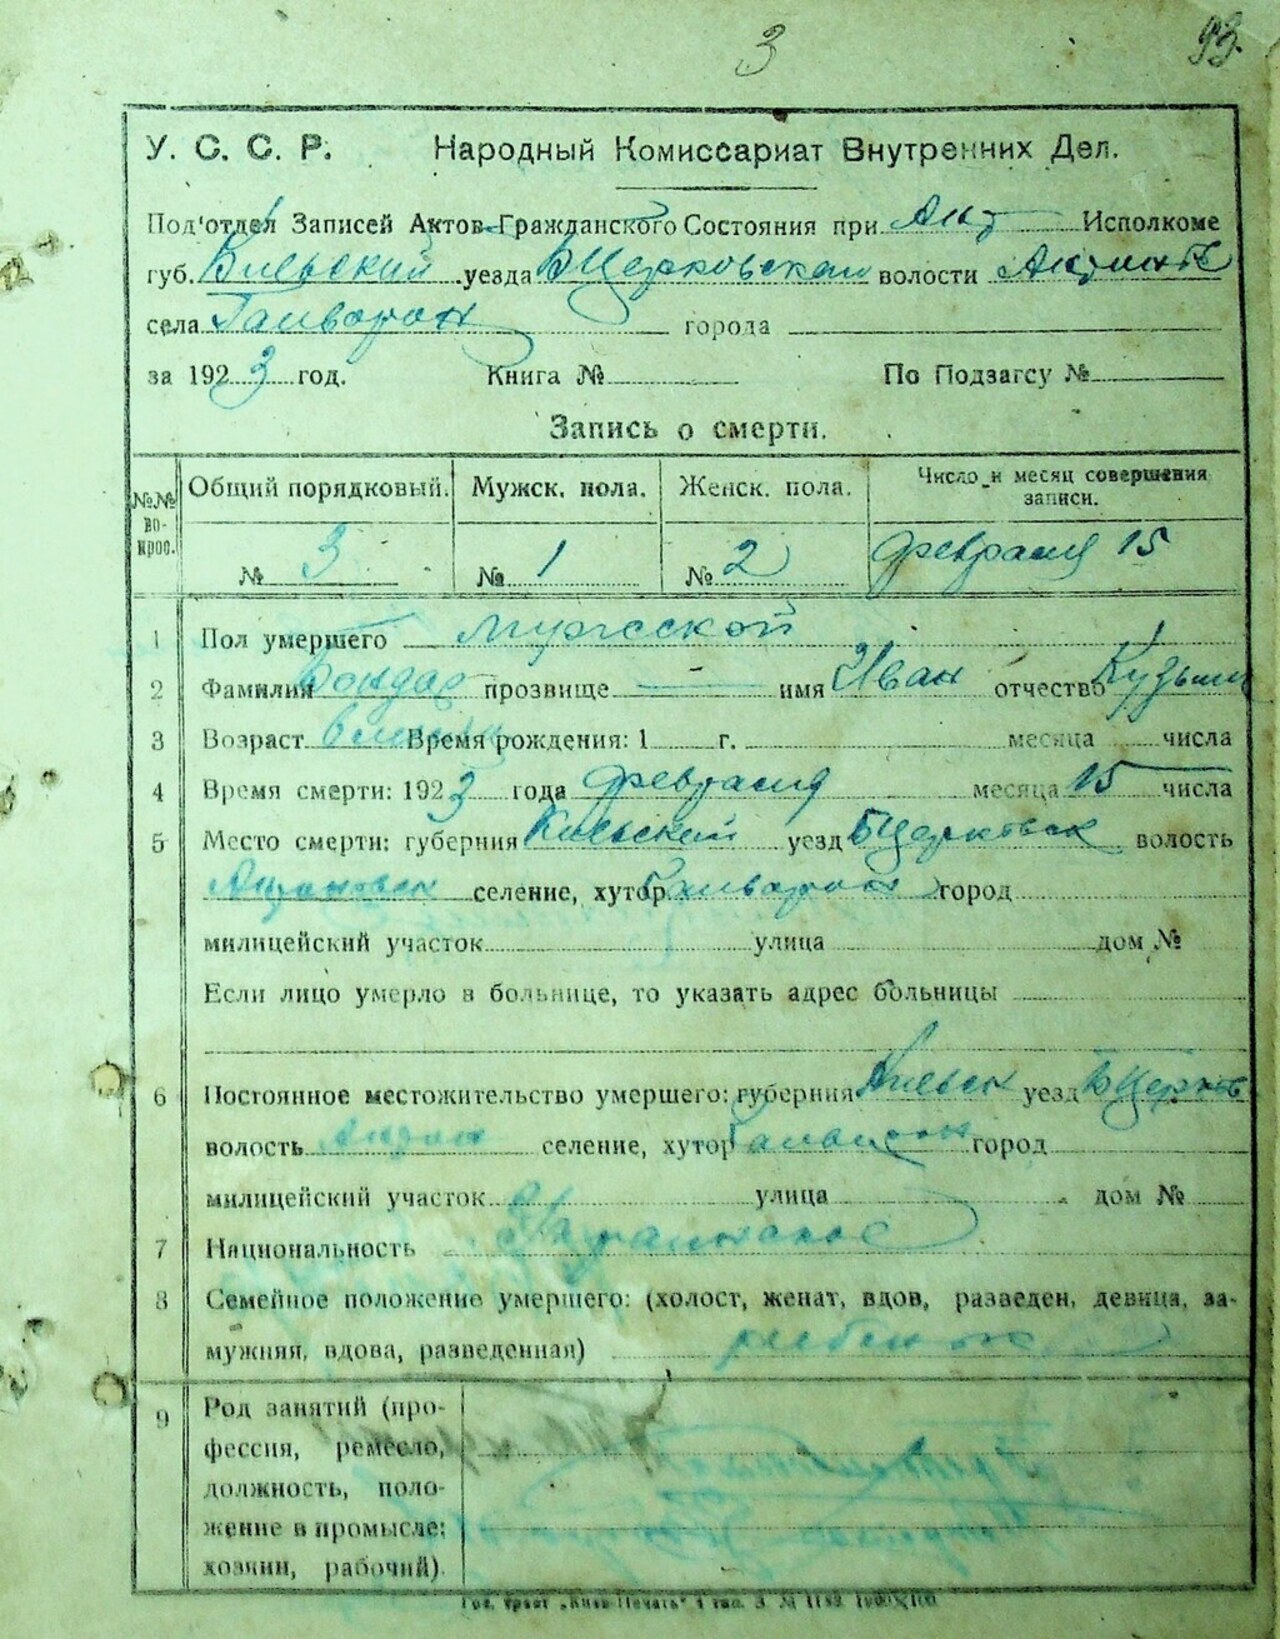 3
93.
У. С. С. Р. Народный Комиссариат Внутренних Дел.
Под'отдел Записей Актов Гражданского Состояния при Исполкоме
губ. Киевский уезда БЦерковская волости
села Гайворон города
за 1923 год. Книга № По Подзагсу №
Запись о смерти.
№№ вопрос. Общий порядковый. Мужск. пола. Женск. пола. Число и месяц совершения записи.
№ 3 № 1 № 2 февраля 15
1 Пол умершего мужеской
2 Фамилия Бондар прозвище — имя Иван отчество Кузьми
3 Возраст Время рождения: 1 г. месяца числа
4 Время смерти: 1923 года февраля месяца 15 числа
5 Место смерти: губерния Киевский уезд БЦерковск волость
селение, хутор Гайворон город
милицейский участок улица дом №
Если лицо умерло в больнице, то указать адрес больницы
6 Постоянное местожительство умершего: губерния Киевск уезд БЦерков
волость селение, хутор Гайворон город
милицейский участок улица дом №
7 Национальность
8 Семейное положение умершего: (холост, женат, вдов, разведен, девица, за-
мужняя, вдова, разведенная) ребенок
9 Род занятий (про-
фессия, ремесло,
должность, поло-
жение в промысле:
хозяин, рабочий).